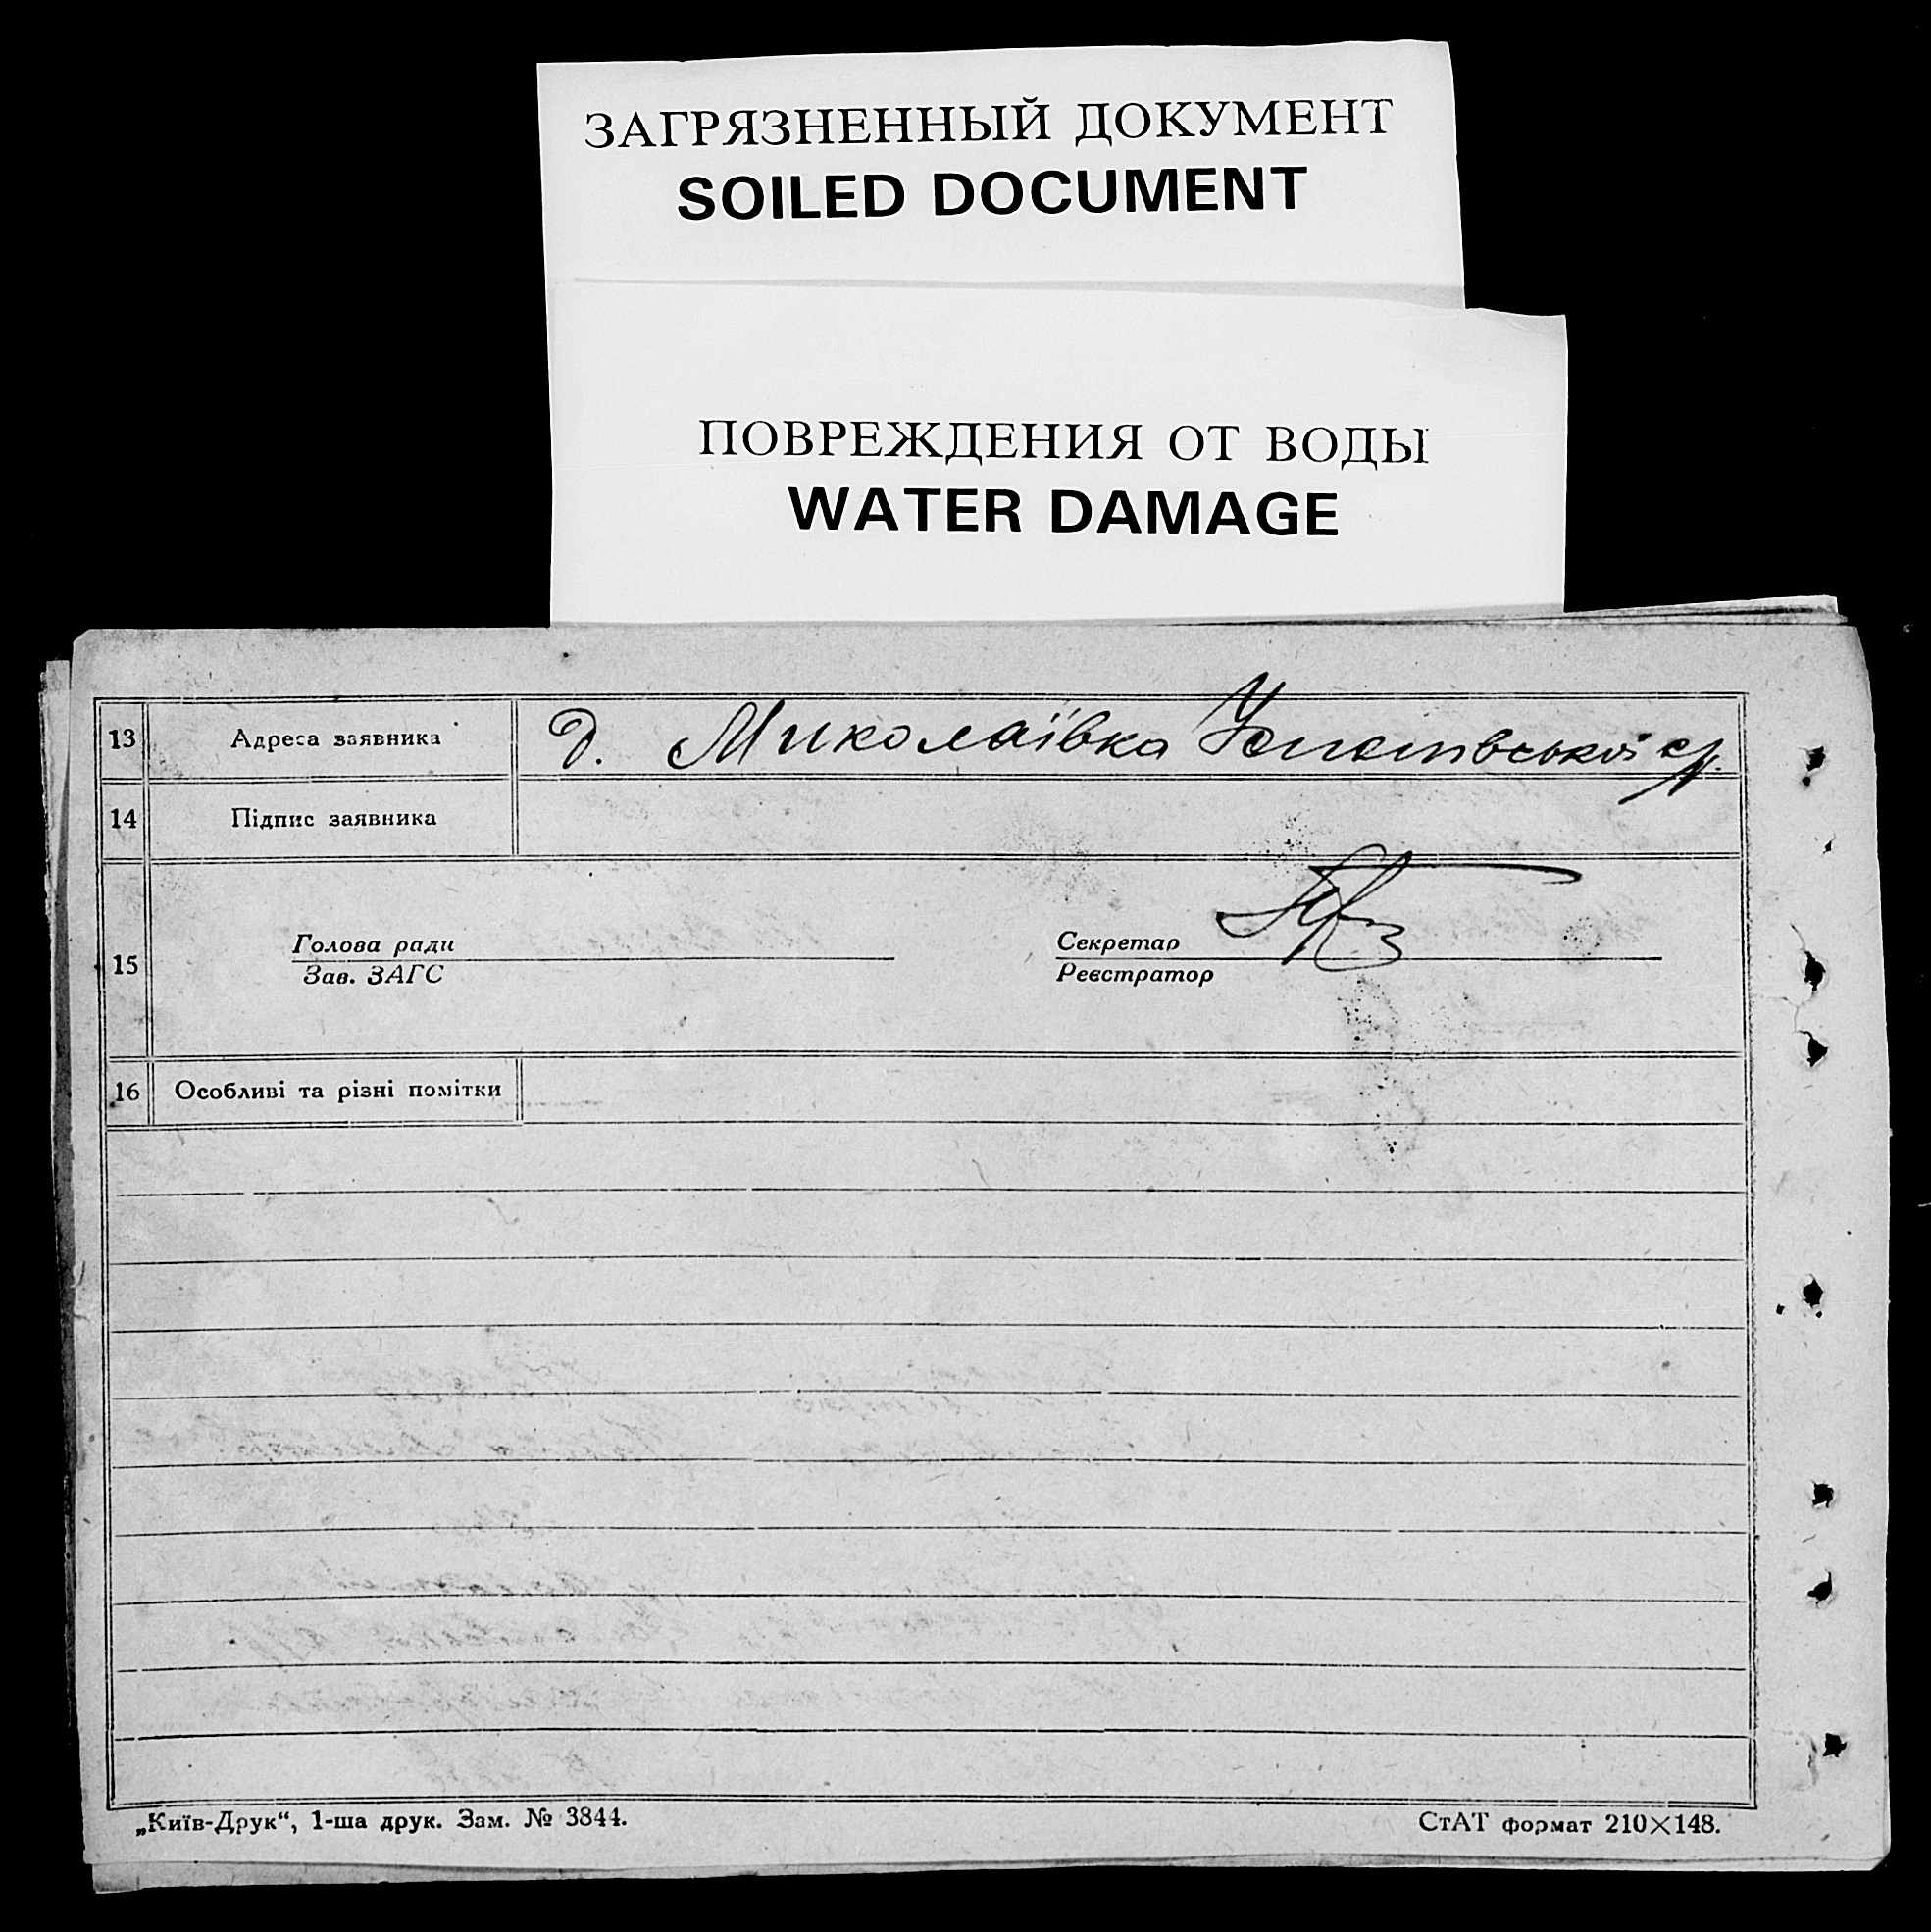 ЗАГРЯЗНЕННЫЙ ДОКУМЕНТ
SOILED DOCUMENT
ПОВРЕЖДЕНИЯ ОТ ВОДЫ
WATER DAMAGE
13 Адреса заявника д. Миколаївка
14 Підпис заявника
15 Голова ради Секретар
Зав. ЗАГС Реєстратор
16 Особливі та різні помітки
„Київ-Друк“, 1-ша друк. Зам. № 3844. СтАТ формат 210×148.